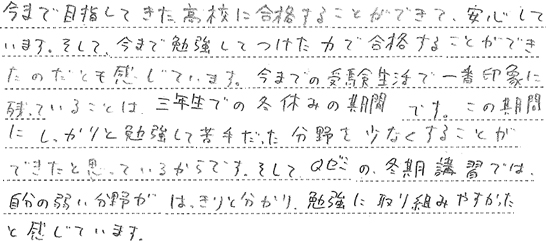 今まで目指してきた高校に合格することができて、安心して
います。そして、今まで勉強してつけた力で合格することができ
たのだとも感じています。今までの受験生活で一番印象に
残っていることは、三年生での冬休みの期間 です。この期間
にしっかりと勉強して苦手だった分野を少なくすることが
できたと思っているからです。そしてQゼミの冬期講習では、
自分の弱い分野がはっきりと分かり、勉強に取り組みやすかった
と感じています。